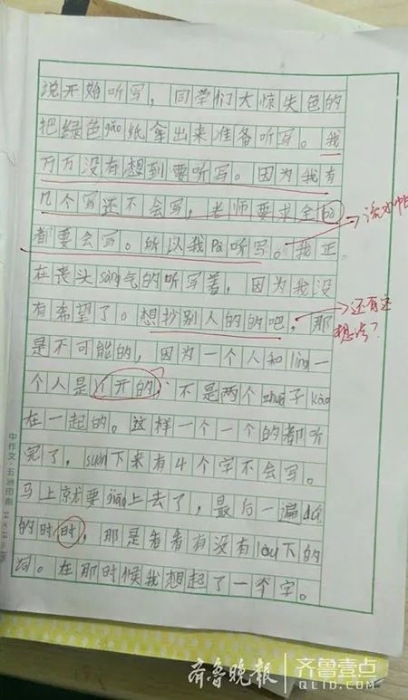 说开始听写，同学们大惊失色的
把绿色gǎo纸拿出来准备听写。我
万万没有想到要听写。因为我有
几个写还不会写，老师要求全部
都要会写。所以我pà听写。我正
在丧头sàng气的听写着，因为我没
有希望了。想抄别人的的吧，那
还有这
想法？
是不可能的，因为一个人和lìng一
个人是开的，不是两个zhuō子kào
在一起的。这样一个一个的都听
完了，shèng下来有4个字不会写。
马上就要jiāo上去了，最后一遍dú
的时时，那是看看有没有lòu下的
词。在那时候我想起了一个字。
中作文·五洲印刷
齐鲁晚报 齐鲁壹点
QLID.COM